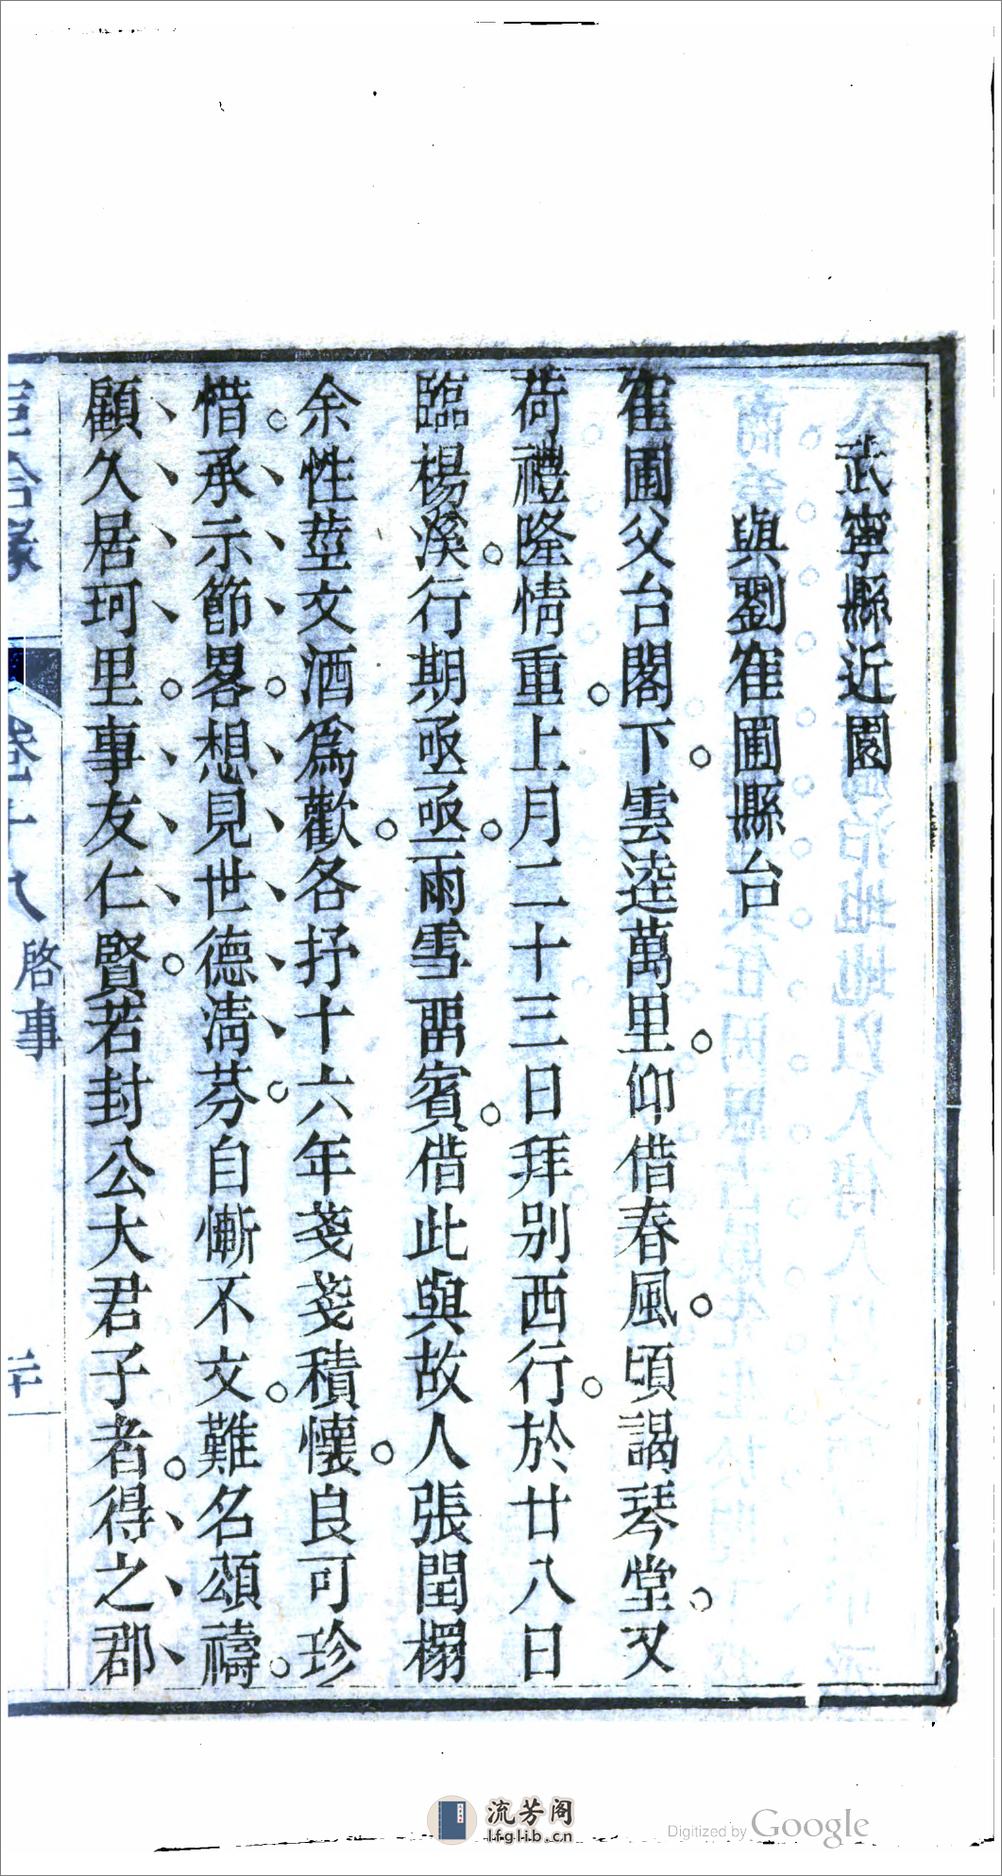 武寧縣近園
與劉隺圃縣台
隺圃父台閣下雲逵萬里仰借春風頃謁琴堂又
荷禮隆情重上月二十三日拜别西行於廿八日
臨楊溪行期亟亟雨雪畱賓借此與故人張閏榻
余性莖文酒爲歡各抒十六年菚菚積懷良可珍
惜承示節畧想見世德淸芬自慚不文難名頌禱
顧久居珂里事友仁賢若封公大君子者得之郡
卷十八 啓事
流芳阁
lfglib.cn
Digitized by Google